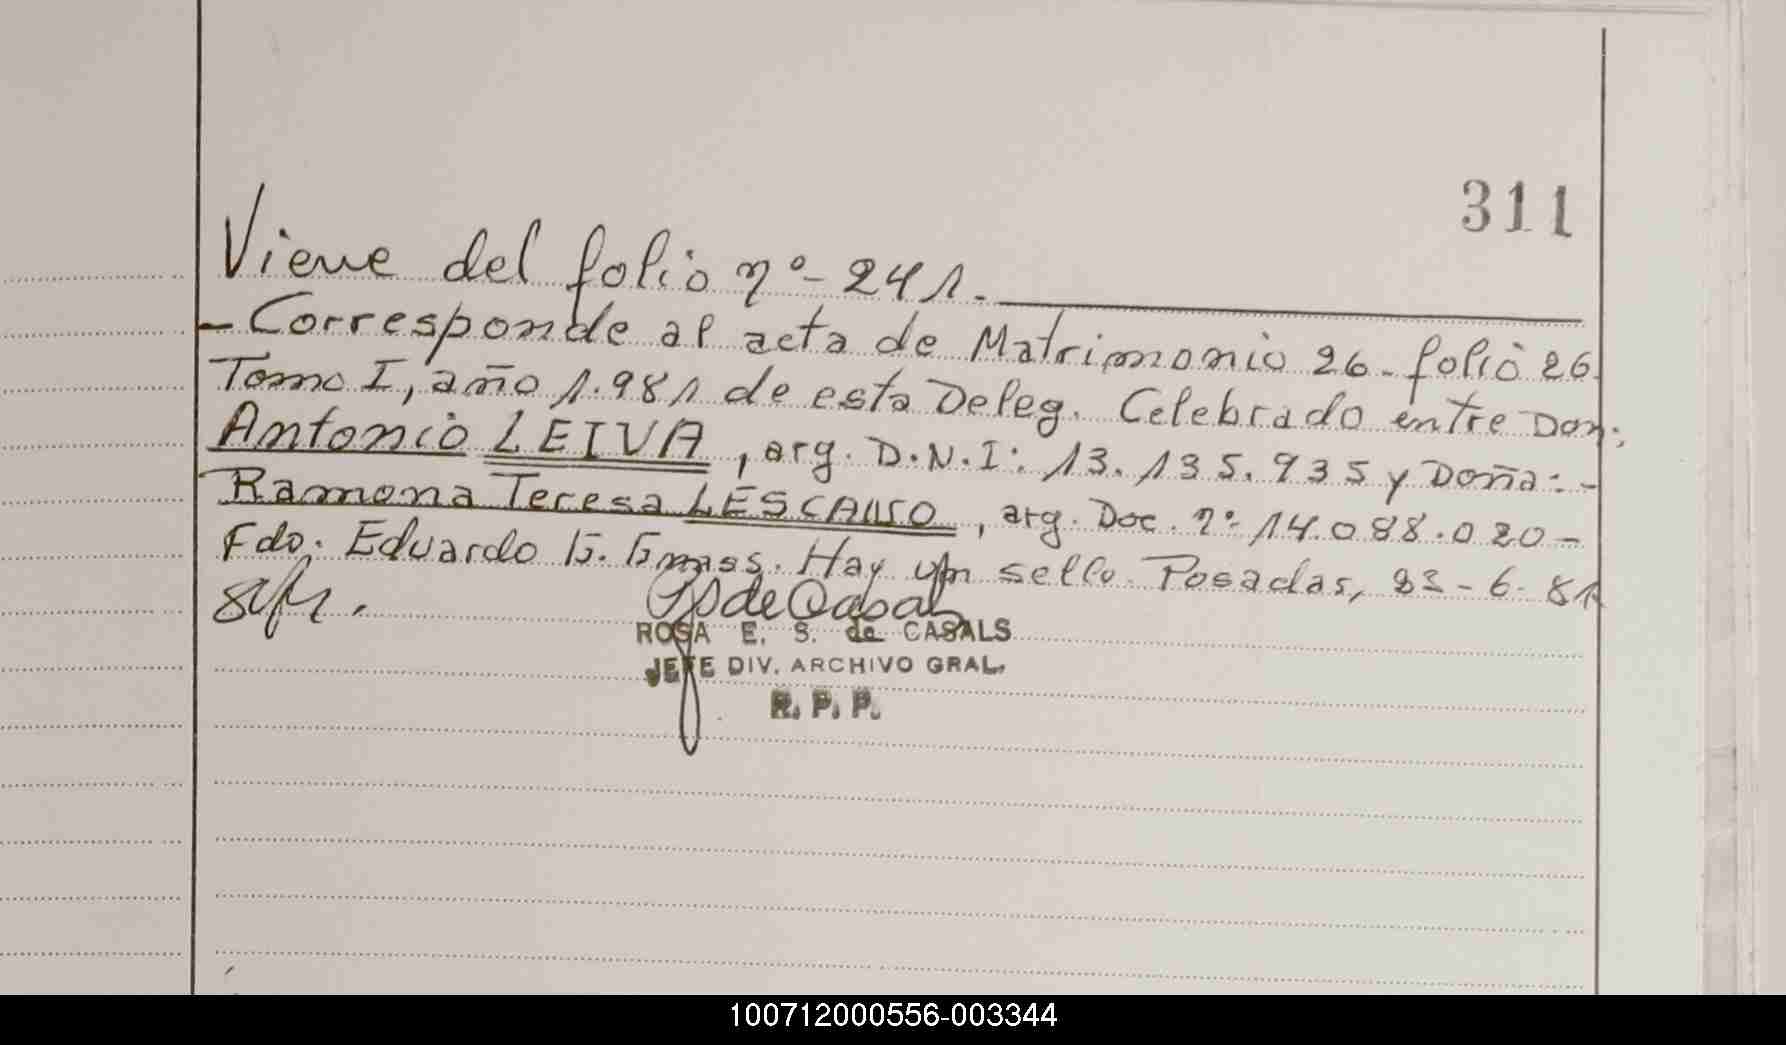 311
Viene del folio nº- 241.
- Corresponde al acta de Matrimonio 26. folio 26.
Tomo I, año 1.981 de esta Deleg. Celebrado entre Don:
Antonio LEIVA, arg. D.N.I: 13.135.935 y Doña: -
Ramona Teresa LESCANO, arg. Doc. nº- 14.088.020-
Fdo. Eduardo G. Gmass. Hay un sello. Posadas, 23-6-81
ROSA E. S. de CASALS
JEFE DIV. ARCHIVO GRAL.
R. P. P.
100712000556-003344